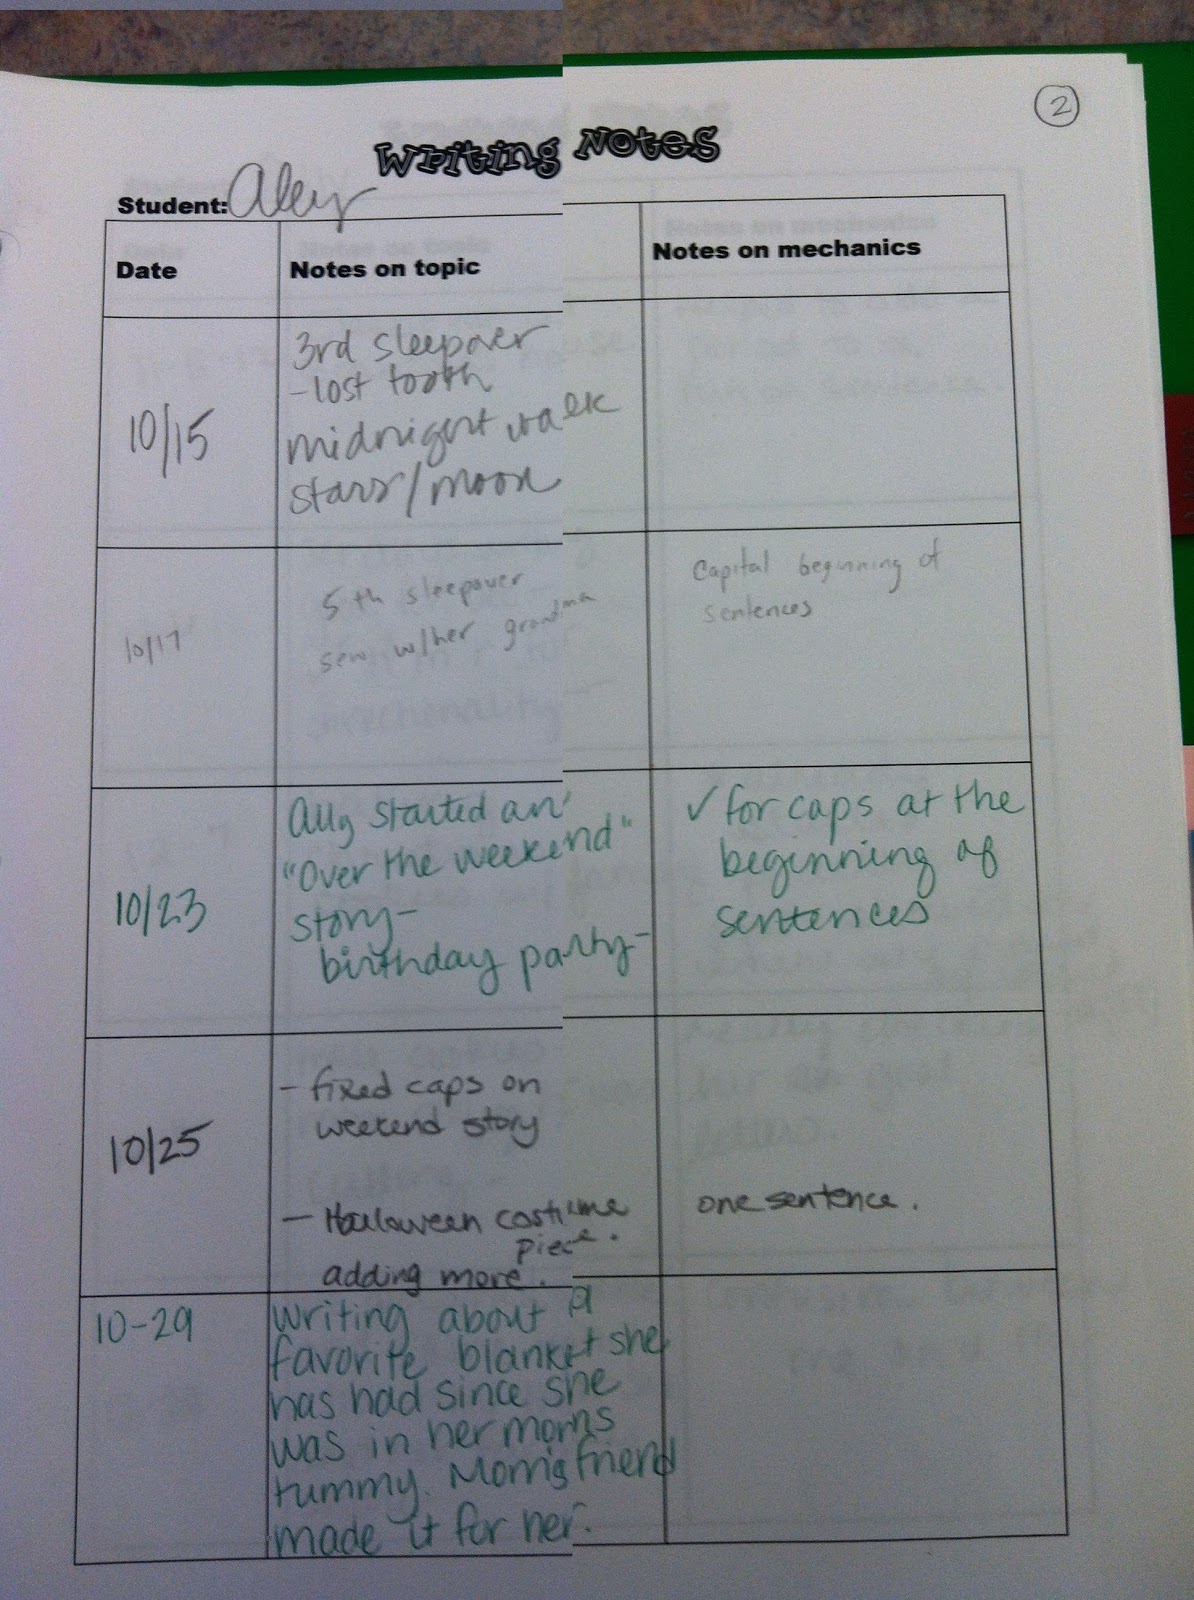 2
Writing Notes
Student:
Date
Notes on topic
Notes on mechanics
10/15
3rd sleepover
-lost tooth
midnight walk
stars/moon
10/17
5th sleepover
sew w/her grandma
Capital beginning of
sentences
10/23
Ally started an
"Over the weekend"
story-
birthday party-
✓ for caps at the
beginning of
sentences
10/25
- fixed caps on
weekend story
- Halloween costume
piece.
adding more.
one sentence.
10-29
Writing about a
favorite blanket she
has had since she
was in her moms
tummy. Mom's friend
made it for her.